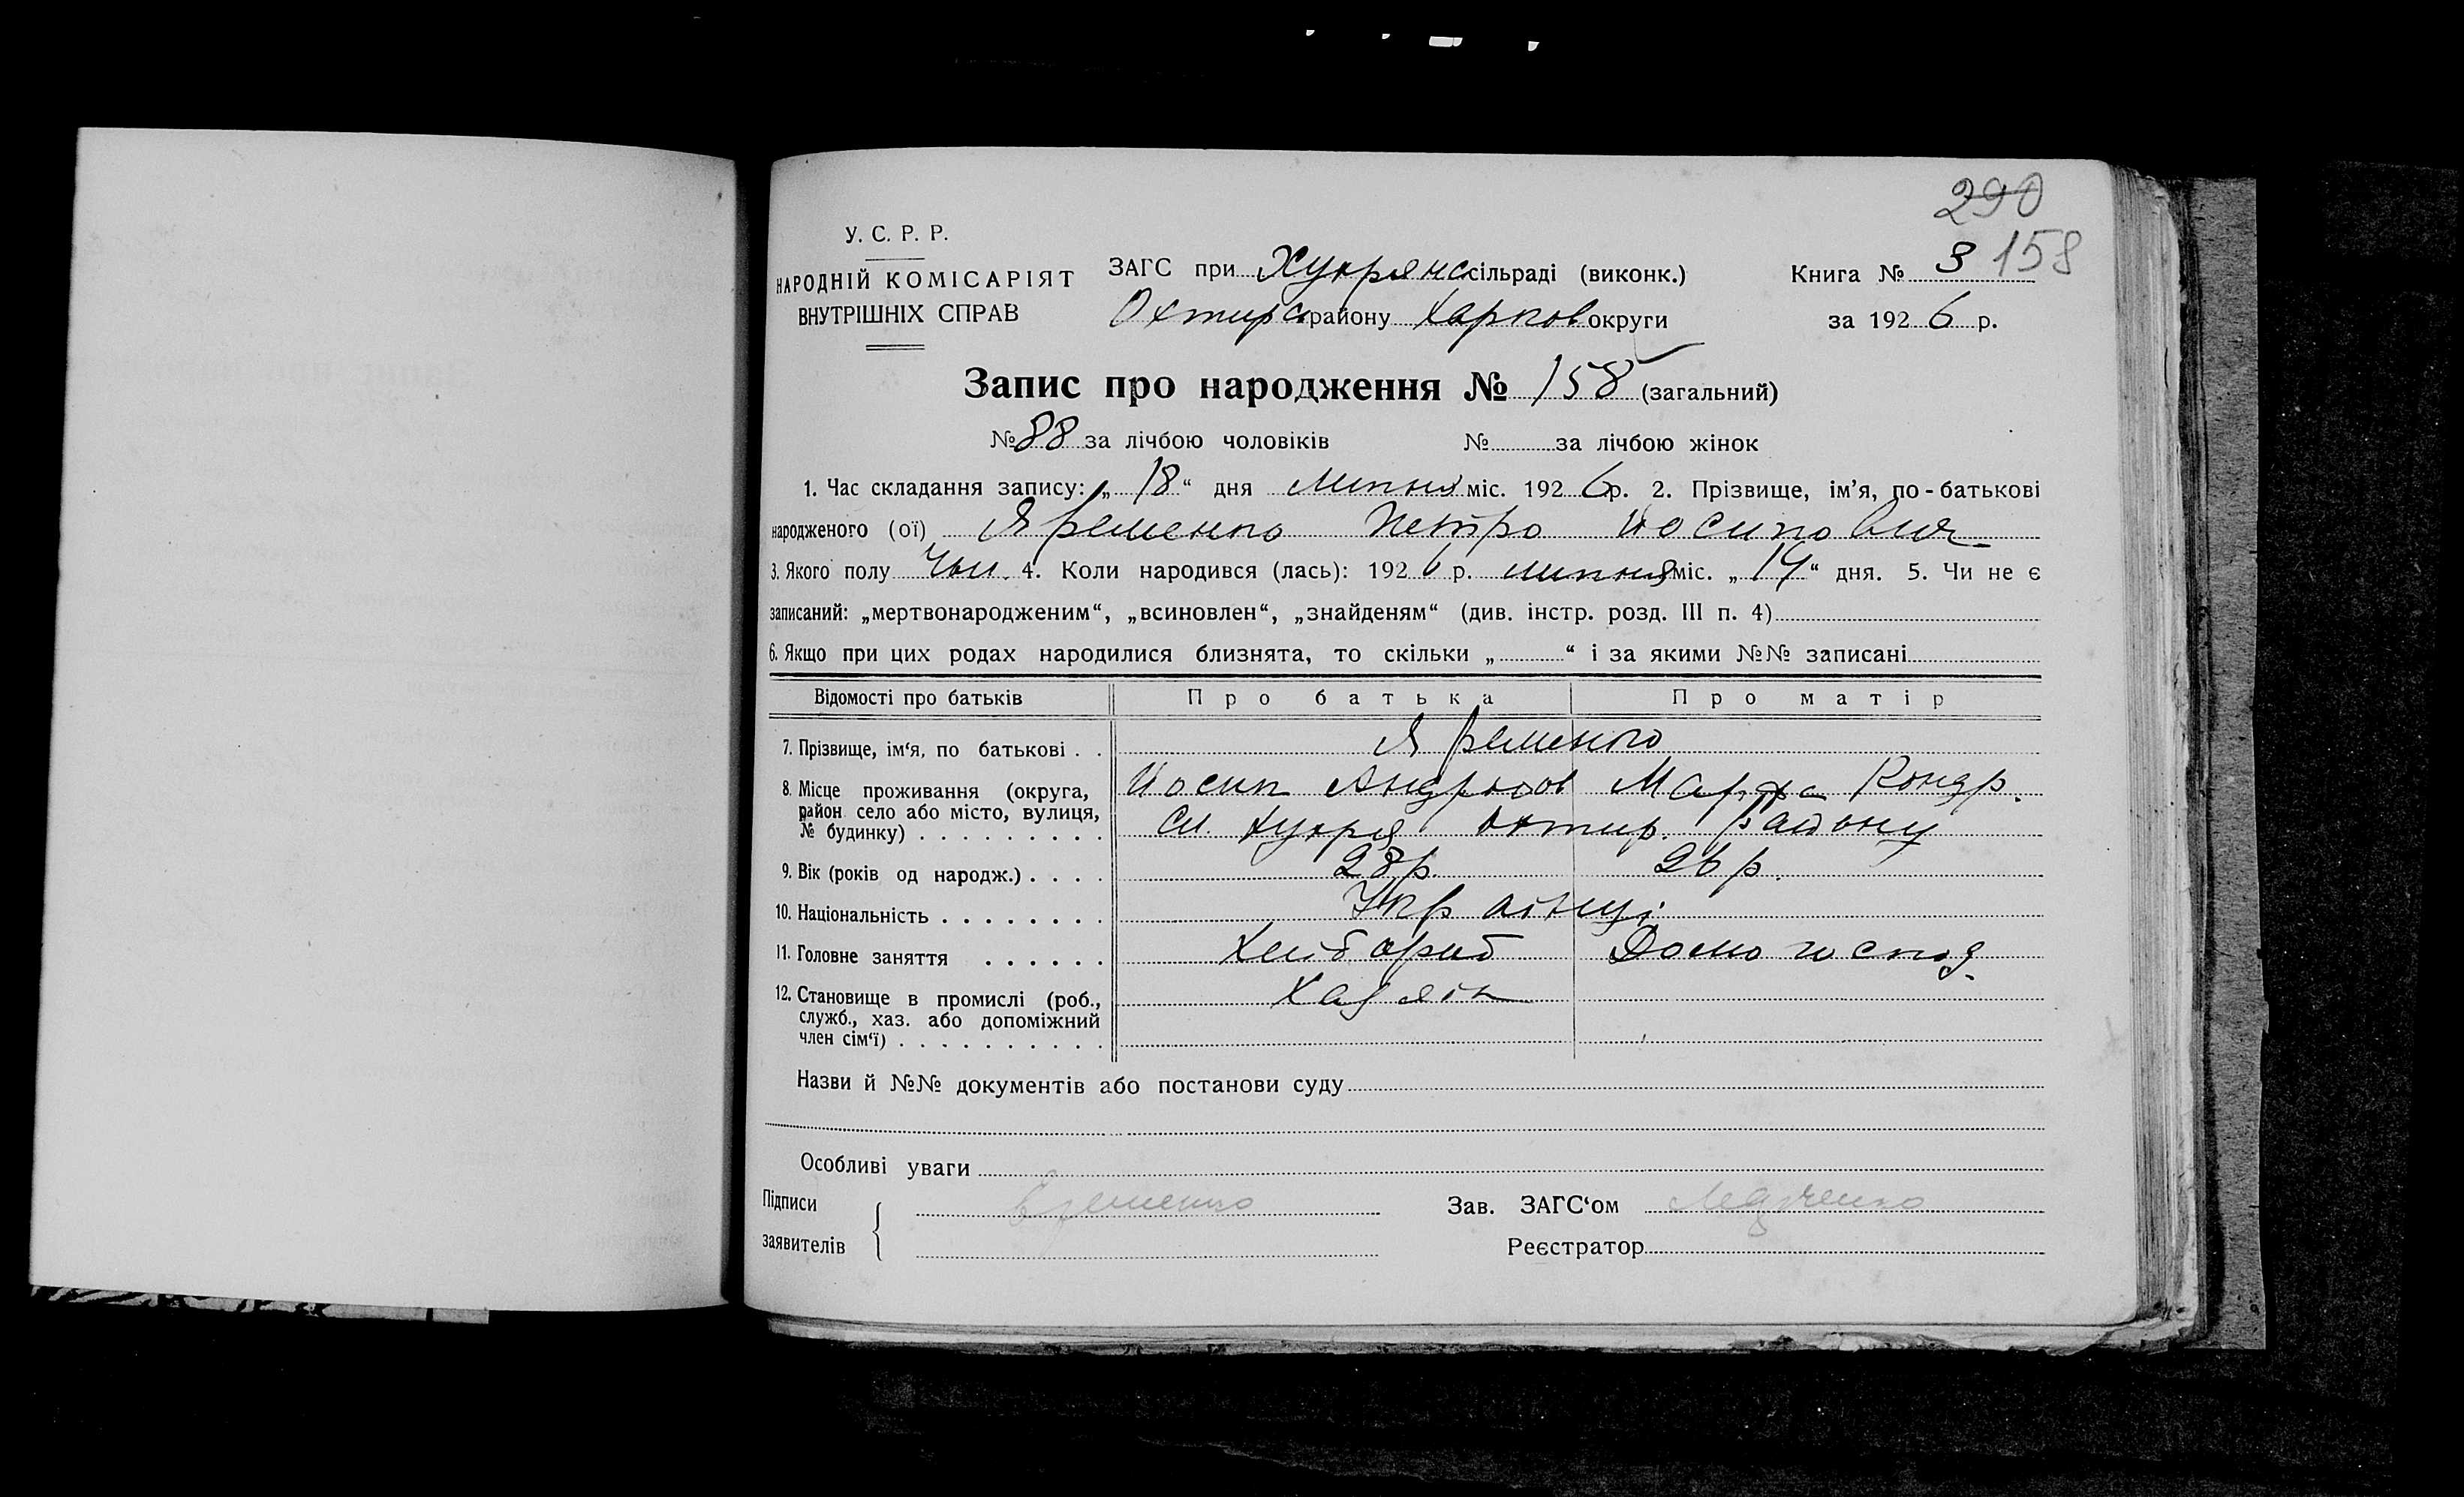 290
158
У. С. Р. Р.
НАРОДНІЙ КОМІСАРІЯТ
ВНУТРІШНІХ СПРАВ
ЗАГС при Хухрянс сільраді (виконк.)
Охтирс району Харков округи
Книга № 3
за 1926 р.
Запис про народження № 158 (загальний)
№ 88 за лічбою чоловіків № за лічбою жінок
1. Час складання запису: „ 18 “ дня Липня міс. 1926 р. 2. Прізвище, ім’я, по-батькові
народженого (ої) Яременко Петро Иосипович
3. Якого полу Чол. 4. Коли народився (лась): 1926 р. липня міс. „ 14 “ дня. 5. Чи не є
записаний: „мертвонародженим“, „всиновлен“, „знайденям“ (див. інстр. розд. III п. 4)
6. Якщо при цих родах народилися близнята, то скільки „ “ і за якими №№ записані
Відомості про батьків Про батька Про матір
7. Прізвище, ім‘я, по батькові . . Яременко
8. Місце проживання (округа, Иосип Андрійов Марфа Кондр.
район село або місто, вулиця,
№ будинку) . . . . . . . . . Сл. Хухря Охтир. району
9. Вік (років од народж.) . . . . 28 р. 26 р.
10. Національність . . . . . . . . Українці
11. Головне заняття . . . . . . Хлібороб Домогоспод.
12. Становище в промислі (роб., Хазяїн
служб., хаз. або допоміжний
член сім‘ї) . . . . . . . . . .
Назви й №№ документів або постанови суду
Особливі уваги
Підписи
заявителів
Яременко
Зав. ЗАГС‘ом
Реєстратор